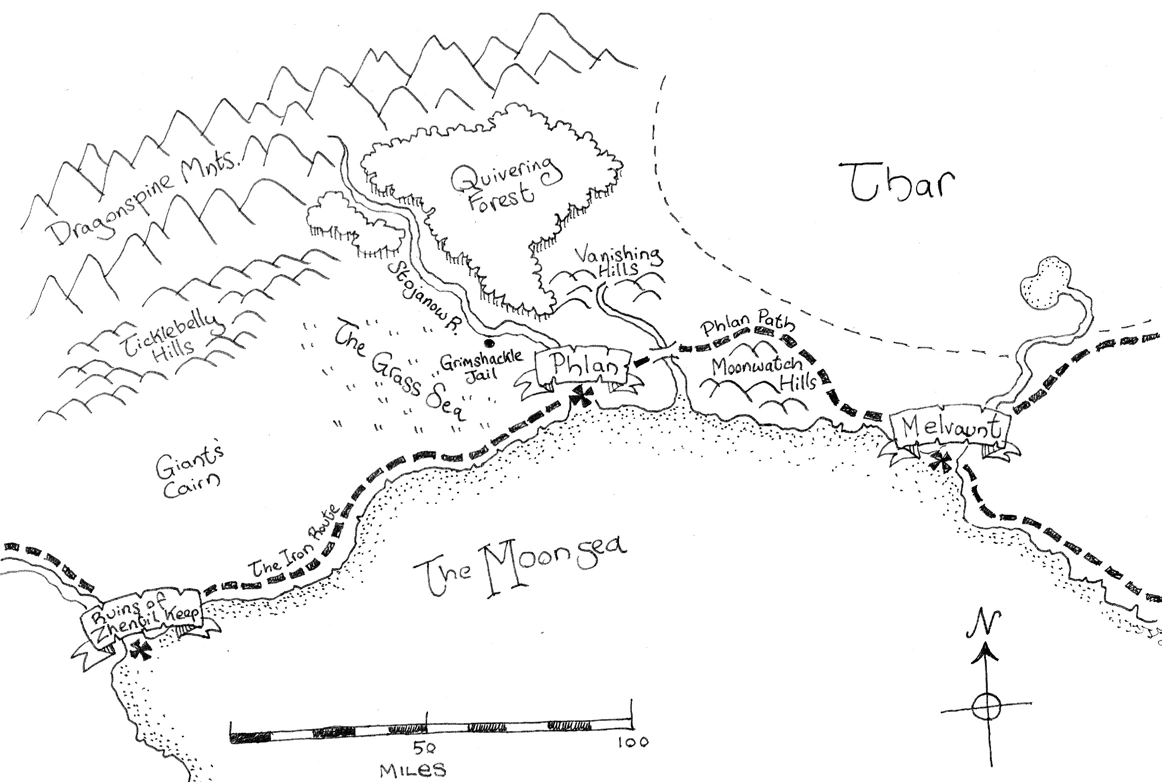 Dragonspine Mnts.
Quivering
Forest
Thar
Vanishing
Hills
Stojanow R.
Ticklebelly
Hills
The Grass Sea
Grimshackle
Jail
Phlan
Phlan Path
Moonwatch
Hills
Melvaunt
Giant's
Cairn
The Iron Route
The Moonsea
Ruins of
Zhentil Keep
N
50
100
MILES